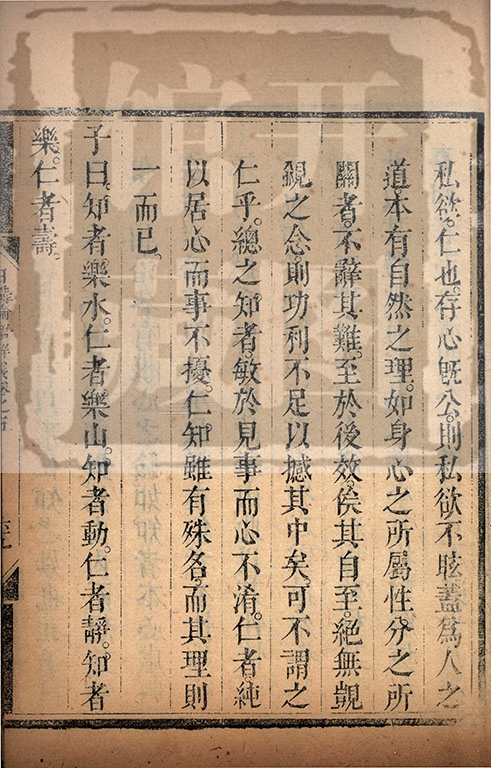 私欲。仁也。存心旣公。則私欲不眩。蓋爲人之
道。本有自然之理。如身心之所屬。性分之所
關者。不辭其難。至於後效。俟其自至。絕無覬
覦之念。則功利不足以撼其中矣。可不謂之
仁乎。總之知者。敏於見事而心不淆。仁者。純
以居心而事不擾。仁知雖有殊名。而其理則
一而已。
子曰。知者樂水。仁者樂山。知者動。仁者靜。知者
樂。仁者壽。